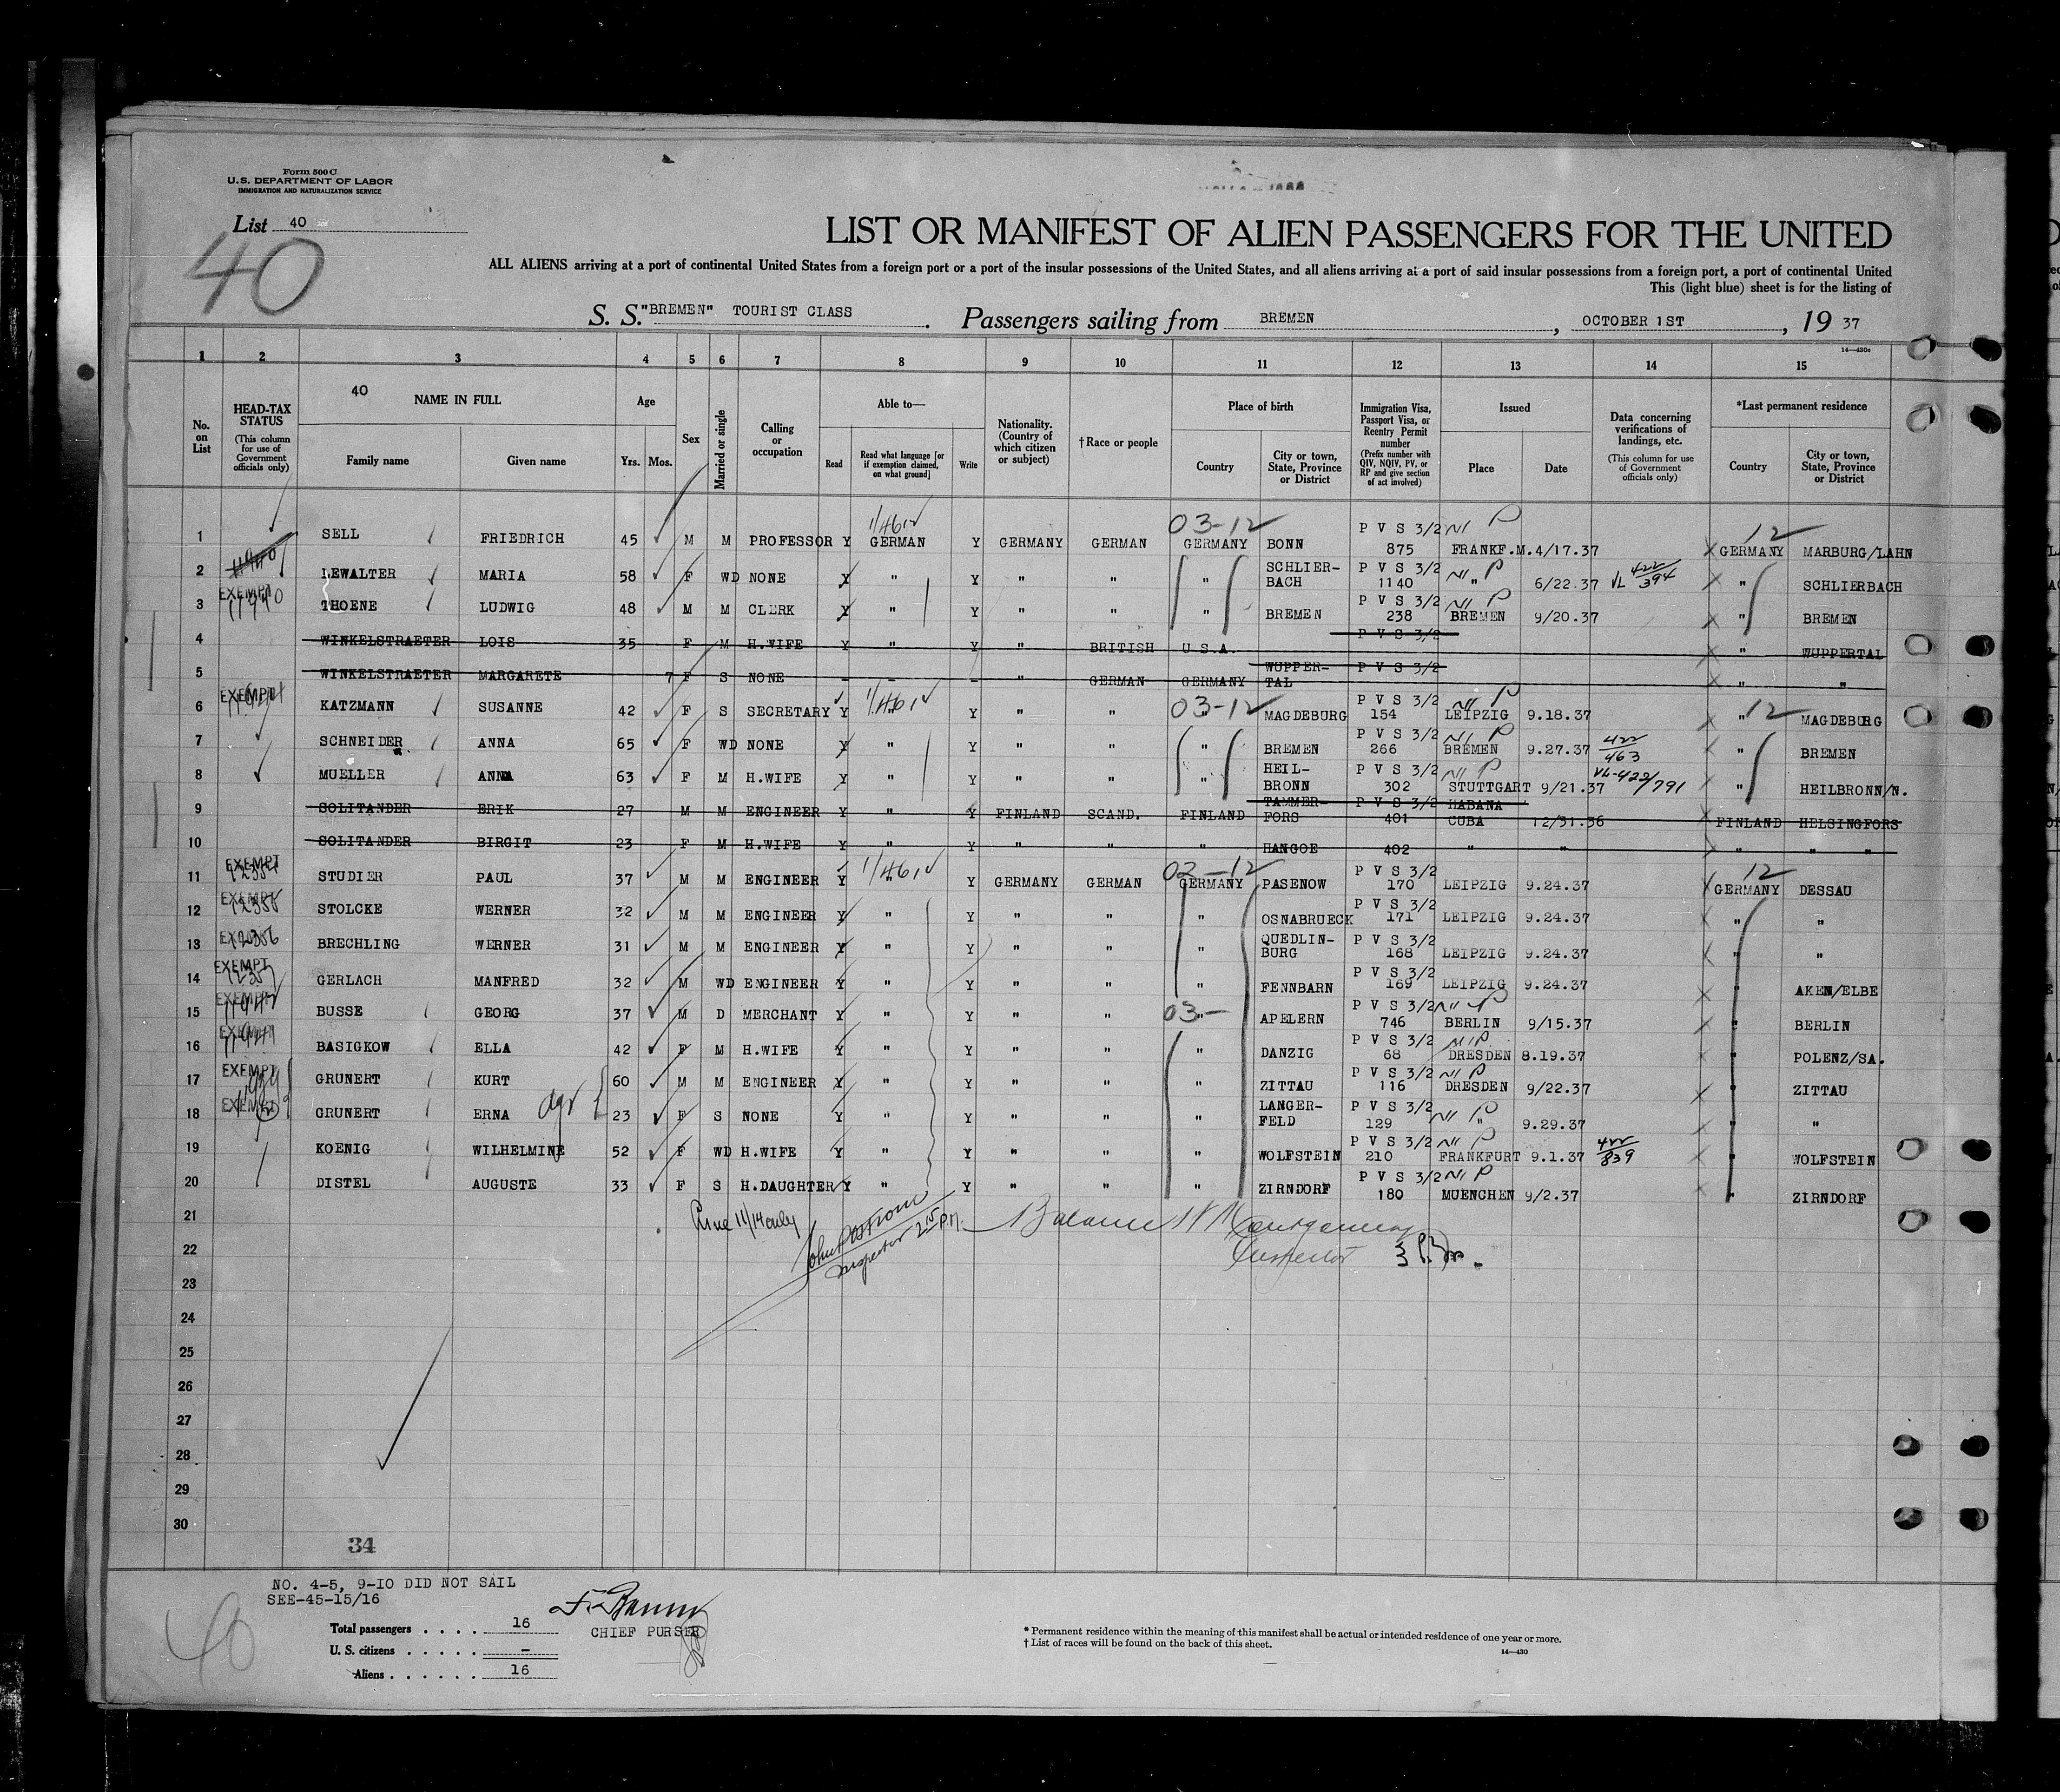 Form 500 C
U.S. DEPARTMENT OF LABOR
IMMIGRATION AND NATURALIZATION SERVICE
List 40
40
LIST OR MANIFEST OF ALIEN PASSENGERS FOR THE UNITED
ALL ALIENS arriving at a port of continental United States from a foreign port or a port of the insular possessions of the United States, and all aliens arriving at a port of said insular possessions from a foreign port, a port of continental United
This (light blue) sheet is for the listing of
S. S. "BREMEN" TOURIST CLASS. Passengers sailing from BREMEN, OCTOBER 1ST, 19 37
14—430c
1 2 3 4 5 6 7 8 9 10 11 12 13 14 15
No. on List
HEAD-TAX STATUS (This column for use of Government officials only)
40 NAME IN FULL
Family name Given name
Age
Yrs. Mos.
Sex
Married or single
Calling or occupation
Able to—
Read Read what language [or if exemption claimed, on what ground] Write
Nationality. (Country of which citizen or subject)
†Race or people
Place of birth
Country City or town, State, Province or District
Immigration Visa, Passport Visa, or Reentry Permit number (Prefix number with QIV, NQIV, PV, or RP and give section of act involved)
Issued
Place Date
Data concerning verifications of landings, etc. (This column for use of Government officials only)
*Last permanent residence
Country City or town, State, Province or District
1 SELL FRIEDRICH 45 M M PROFESSOR Y GERMAN Y GERMANY GERMAN 03-12 GERMANY BONN P V S 3/2 875 FRANKF.M. 4/17.37 12 GERMANY MARBURG/LAHN
2 LEWALTER MARIA 58 F WD NONE Y " Y " " " SCHLIER-BACH P V S 3/2 1140 " 6/22.37 VL 422/394 " SCHLIERBACH
3 EXEMPT THOENE LUDWIG 48 M M CLERK Y " Y " " " BREMEN P V S 3/2 238 BREMEN 9/20.37 " BREMEN
4 WINKELSTRAETER LOIS 35 F M H.WIFE Y " Y " BRITISH U.S.A. P V S 3/2 " WUPPERTAL
5 WINKELSTRAETER MARGARETE 7 F S NONE - - - " GERMAN GERMANY WUPPER-TAL P V S 3/2 " "
6 EXEMPT KATZMANN SUSANNE 42 F S SECRETARY Y " Y " " 03-12 MAGDEBURG P V S 3/2 154 LEIPZIG 9.18.37 " 12 MAGDEBURG
7 SCHNEIDER ANNA 65 F WD NONE Y " Y " " " BREMEN P V S 3/2 266 BREMEN 9.27.37 422/463 " BREMEN
8 MUELLER ANNA 63 F M H.WIFE Y " Y " " " HEIL-BRONN P V S 3/2 302 STUTTGART 9/21.37 VL-422/791 " HEILBRONN/N.
9 SOLITANDER ERIK 27 M M ENGINEER Y " Y FINLAND SCAND. FINLAND TAMMER-FORS P V S 3/2 401 HABANA CUBA 12/31.36 FINLAND HELSINGFORS
10 SOLITANDER BIRGIT 23 F M H.WIFE Y " Y " " " HANGOE 402 " " " " "
11 EXEMPT STUDIER PAUL 37 M M ENGINEER Y " Y GERMANY GERMAN GERMANY PASENOW P V S 3/2 170 LEIPZIG 9.24.37 12 GERMANY DESSAU
12 EXEMPT STOLCKE WERNER 32 M M ENGINEER Y " Y " " " OSNABRUECK P V S 3/2 171 LEIPZIG 9.24.37 " "
13 BRECHLING WERNER 31 M M ENGINEER Y " Y " " " QUEDLIN-BURG P V S 3/2 168 LEIPZIG 9.24.37 " "
14 EXEMPT GERLACH MANFRED 32 M WD ENGINEER Y " Y " " " FENNBARN P V S 3/2 169 LEIPZIG 9.24.37 " AKEN/ELBE
15 EXEMPT BUSSE GEORG 37 M D MERCHANT Y " Y " " 03- " APELERN P V S 3/2 746 BERLIN 9/15.37 " BERLIN
16 EXEMPT BASIGKOW ELLA 42 F M H.WIFE Y " Y " " " DANZIG P V S 3/2 68 DRESDEN 8.19.37 " POLENZ/SA.
17 EXEMPT GRUNERT KURT 60 M M ENGINEER Y " Y " " " ZITTAU P V S 3/2 116 DRESDEN 9/22.37 " ZITTAU
18 EXEMPT GRUNERT ERNA 23 F S NONE Y " Y " " " LANGER-FELD P V S 3/2 129 " 9.29.37 " "
19 KOENIG WILHELMINE 52 F WD H.WIFE Y " Y " " " WOLFSTEIN P V S 3/2 210 FRANKFURT 9.1.37 422/839 " WOLFSTEIN
20 DISTEL AUGUSTE 33 F S H.DAUGHTER Y " Y " " " ZIRNDORF P V S 3/2 180 MUENCHEN 9/2.37 " ZIRNDORF
21
22 Inspector
23
24
25
26
27
28
29
30
34
NO. 4-5, 9-10 DID NOT SAIL
SEE-45-15/16
40
Total passengers . . . . 16
CHIEF PURSER
U. S. citizens . . . . . –
Aliens . . . . . . 16
* Permanent residence within the meaning of this manifest shall be actual or intended residence of one year or more.
† List of races will be found on the back of this sheet.
14—430